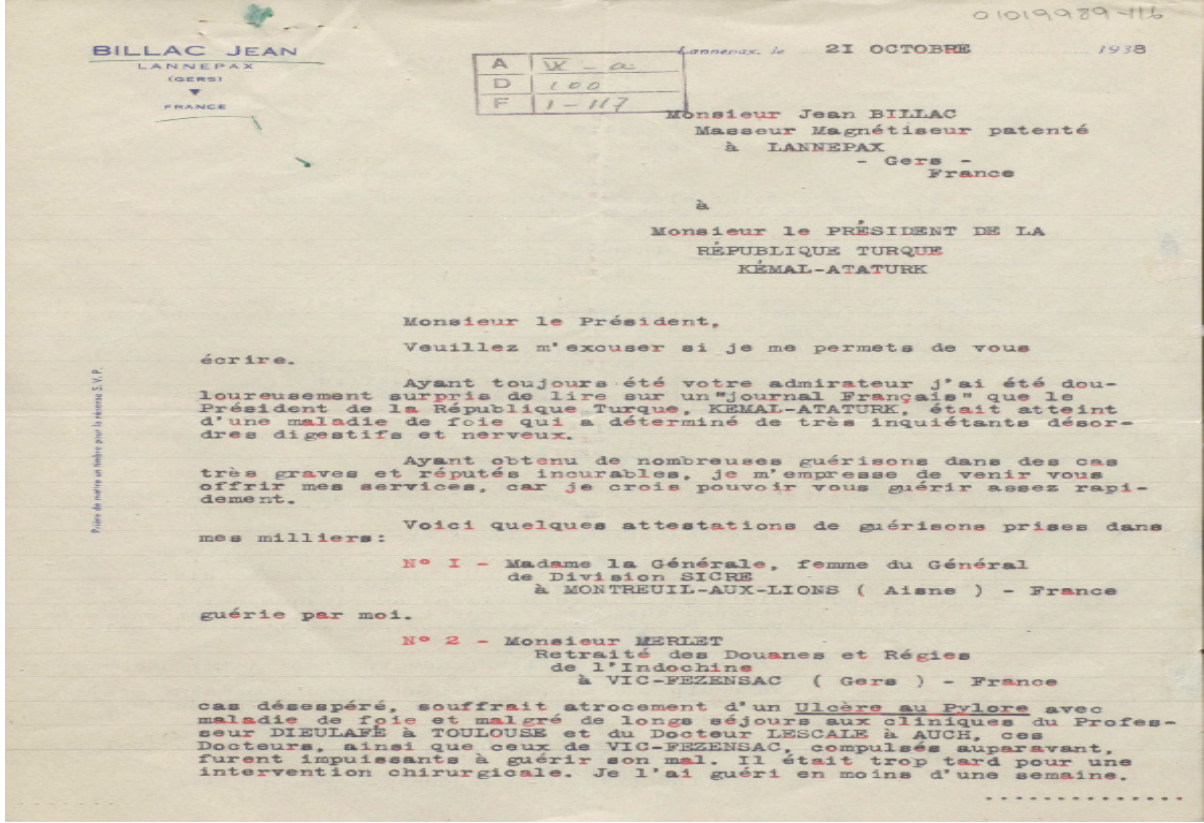 01019989-116
BILLAC JEAN
LANNEPAX
(GERS)
FRANCE
Lannepax, le 2I OCTOBRE 1938
A W - a
D 100
F 1-117
Monsieur Jean BILLAC
Masseur Magnétiseur patenté
à LANNEPAX
- Gers -
France
à
Monsieur le PRÉSIDENT DE LA
RÉPUBLIQUE TURQUE
KÉMAL-ATATURK
Monsieur le Président,
Veuillez m'excuser si je me permets de vous
écrire.
Ayant toujours été votre admirateur j'ai été dou-
loureusement surpris de lire sur un"journal Français" que le
Président de la République Turque, KEMAL-ATATURK, était atteint
d'une maladie de foie qui a déterminé de très inquiétants désor-
dres digestifs et nerveux.
Ayant obtenu de nombreuses guérisons dans des cas
très graves et réputés incurables, je m'empresse de venir vous
offrir mes services, car je crois pouvoir vous guérir assez rapi-
dement.
Voici quelques attestations de guérisons prises dans
mes milliers:
N° I - Madame la Générale, femme du Général
de Division SICRE
à MONTREUIL-AUX-LIONS ( Aisne ) - France
guérie par moi.
N° 2 - Monsieur MERLET
Retraité des Douanes et Régies
de l'Indochine
à VIC-FEZENSAC ( Gers ) - France
cas désespéré, souffrait atrocement d'un Ulcère au Pylore avec
maladie de foie et malgré de longs séjours aux cliniques du Profes-
seur DIEULAFÉ à TOULOUSE et du Docteur LESCALE à AUCH, ces
Docteurs, ainsi que ceux de VIC-FEZENSAC, compulsés auparavant,
furent impuissants à guérir son mal. Il était trop tard pour une
intervention chirurgicale. Je l'ai guéri en moins d'une semaine.
..............
Prière de mettre un timbre pour la réponse S.V.P.